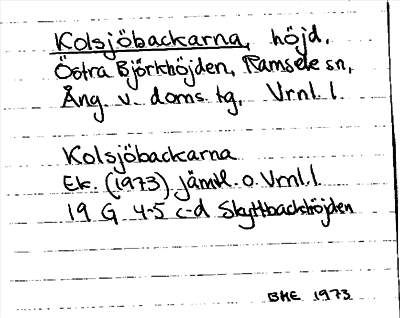 Kolsjöbackarna, höjd,
Östra Björkhöjden, Ramsele sn,
Ång. v. doms. tg, Vrnl. l.
Kolsjöbackarna
Ek. (1973) Jämtl. o. Vrnl. l.
19 G 4-5 c-d Skyttbackhöjden
BHE 1973